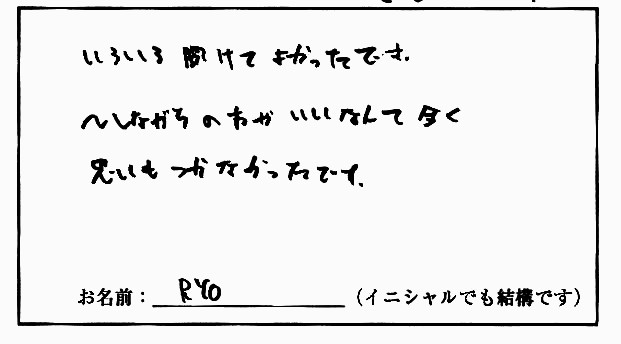 いろいろ聞けてよかったです。
へしながらのわがいいなんて全く
思いもつかなかったです。
お名前：RYO（イニシャルでも結構です）